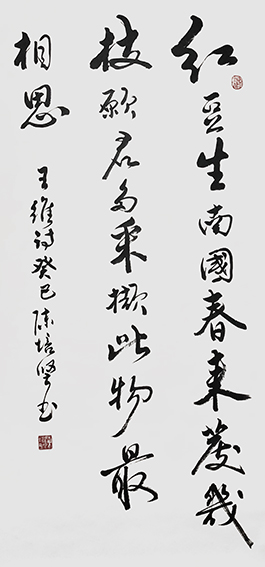 紅豆生南國春来發幾
枝願君多采擷此物最
相思
王維詩癸巳陳培堅书